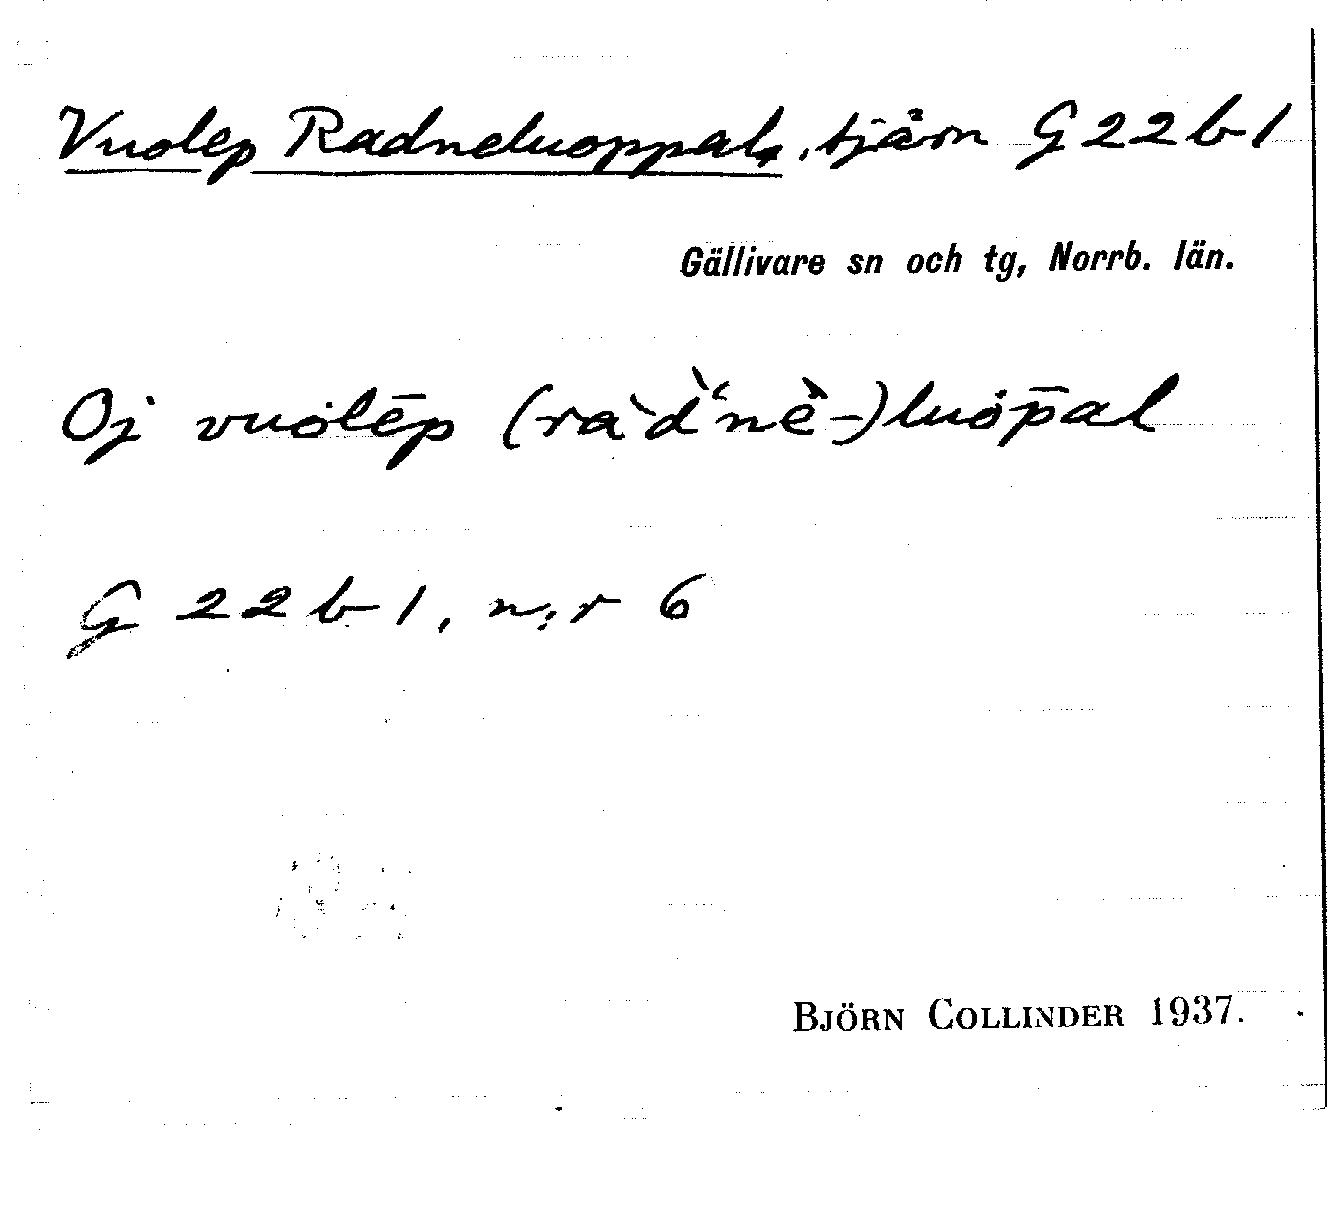 Vuolep Radneluoppal, tjärn G 22 b 1
Gällivare sn och tg, Norrb. län.
Oj vuȯlēp (rȧ̀d̀‘nè̀-)luȯp̄al
G 22 b 1, n:r 6
BJÖRN COLLINDER 1937.